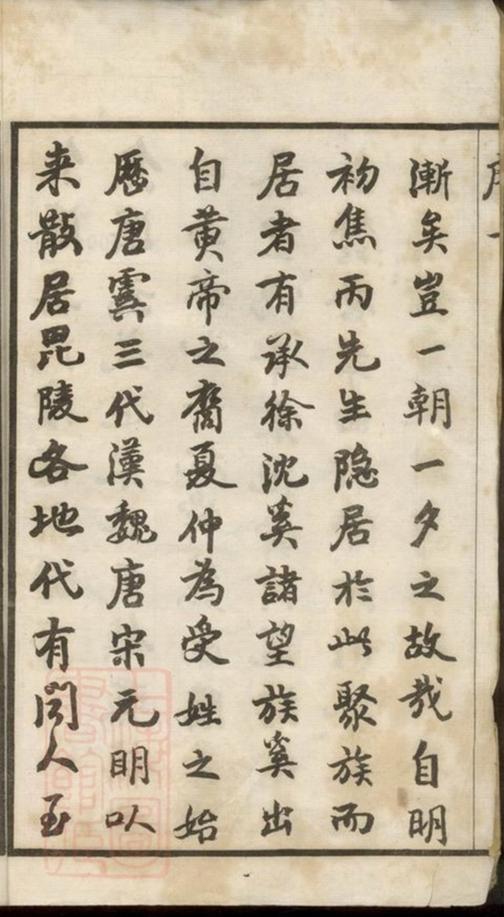 漸矣豈一朝一夕之故哉自明
初焦丙先生隐居於此聚族而
居者有承徐沈奚諸望族奚出
自黄帝之裔夏仲為受姓之始
歷唐虞三代漢魏唐宋元明以
来散居毘陵各地代有聞人至